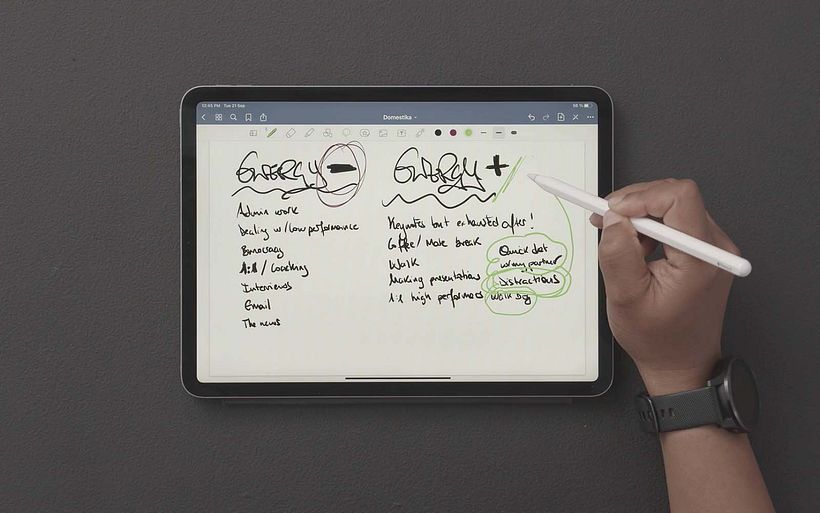 12:45 PM Tue 21 Sep
56 %
Domestika
ENERGY -
Admin work
Dealing w/low performance
Bureocracy
1:1 / Coaching
Interviews
Email
The news
ENERGY +
Keynotes but exhausted after!
Coffee/ Mate break
Walk
Making presentations
1:1 high performers
Quick chat
w/my partner
Distractions
Walk Dog